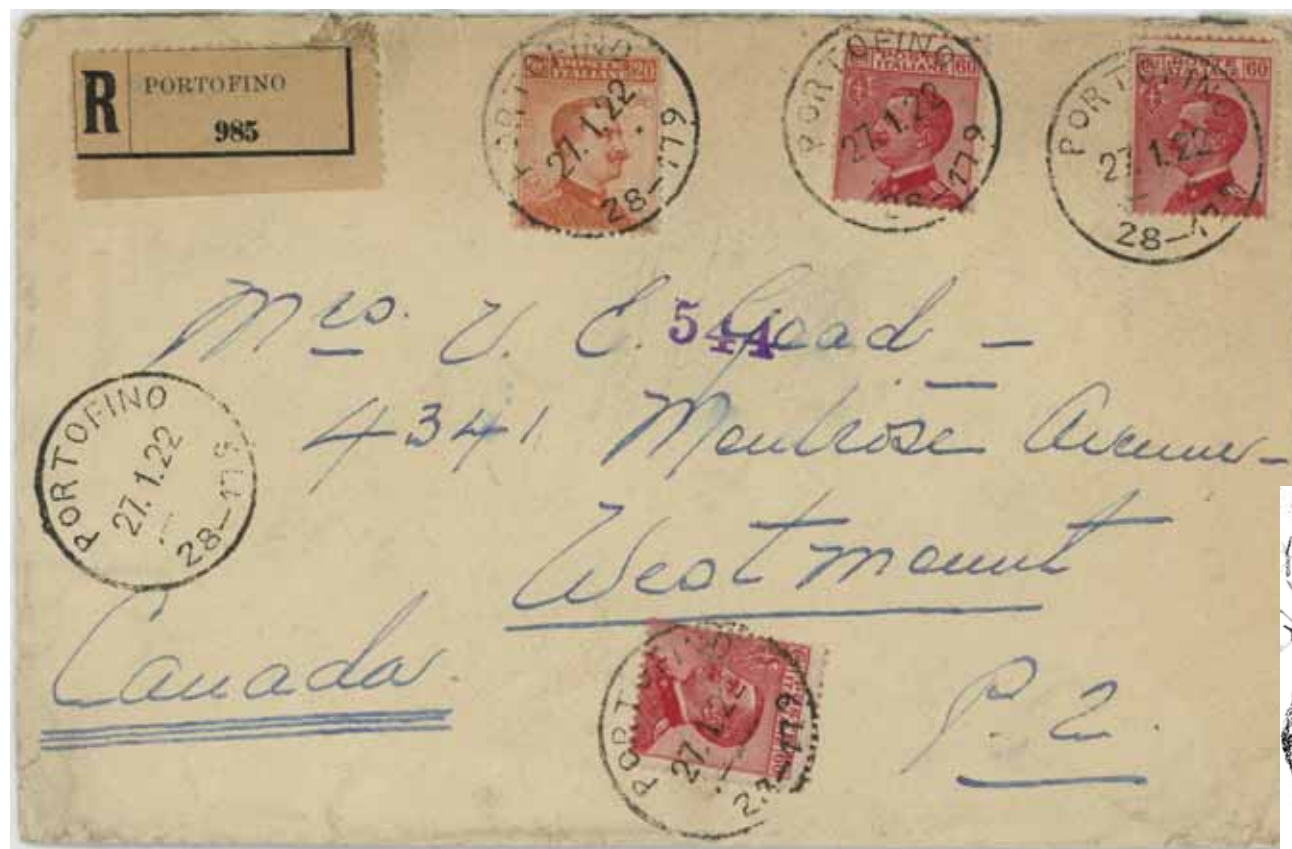 R PORTOFINO
985
POSTE ITALIANE 20
PORTOFINO 27.1.22 28-179
POSTE ITALIANE 60
PORTOFINO 27.1.22 28-179
60
PORTOFINO 27.1.22 28-179
Mrs. V. E. Goad -
544
4341 Montrose Avenue -
PORTOFINO 27.1.22 28-179
Westmount
Canada
P. Q.
PORTOFINO 27.1.22 28-179